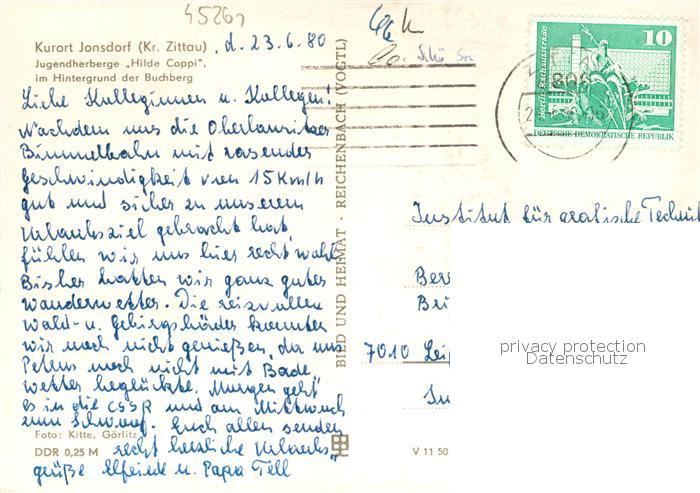 45261
Kurort Jonsdorf (Kr. Zittau), d. 23.6.80
Jugendherberge „Hilde Coppi",
im Hintergrund der Buchberg
Liebe Kolleginnen u. Kollegen!
Nachdem uns die Oberlausitzer
Bimmelbahn mit rasender
Geschwindigkeit von 15 Km/h
gut und sicher zu unserem
Urlaubsziel gebracht hat,
fühlen wir uns hier recht wohl.
Bisher hatten wir ganz gutes
Wanderwetter. Die reizvollen
Wald- u. Gebirgsbäder konnten
wir noch nicht genießen, da uns
Petrus noch nicht mit Bade
wetter beglückte. Morgen geht
es in die CSSR und am Mittwoch
zum Schwof. Euch allen senden
recht herzliche Urlaubs-
grüße Elfriede u. Papa Tell
Foto: Kitte, Görlitz
DDR 0,25 M
BILD UND HEIMAT · REICHENBACH (VOGTL)
V 11 50
10
Berlin, Rathausstraße
DEUTSCHE DEMOKRATISCHE REPUBLIK
Institut für
Ber
7010 Leip
privacy protection
Datenschutz